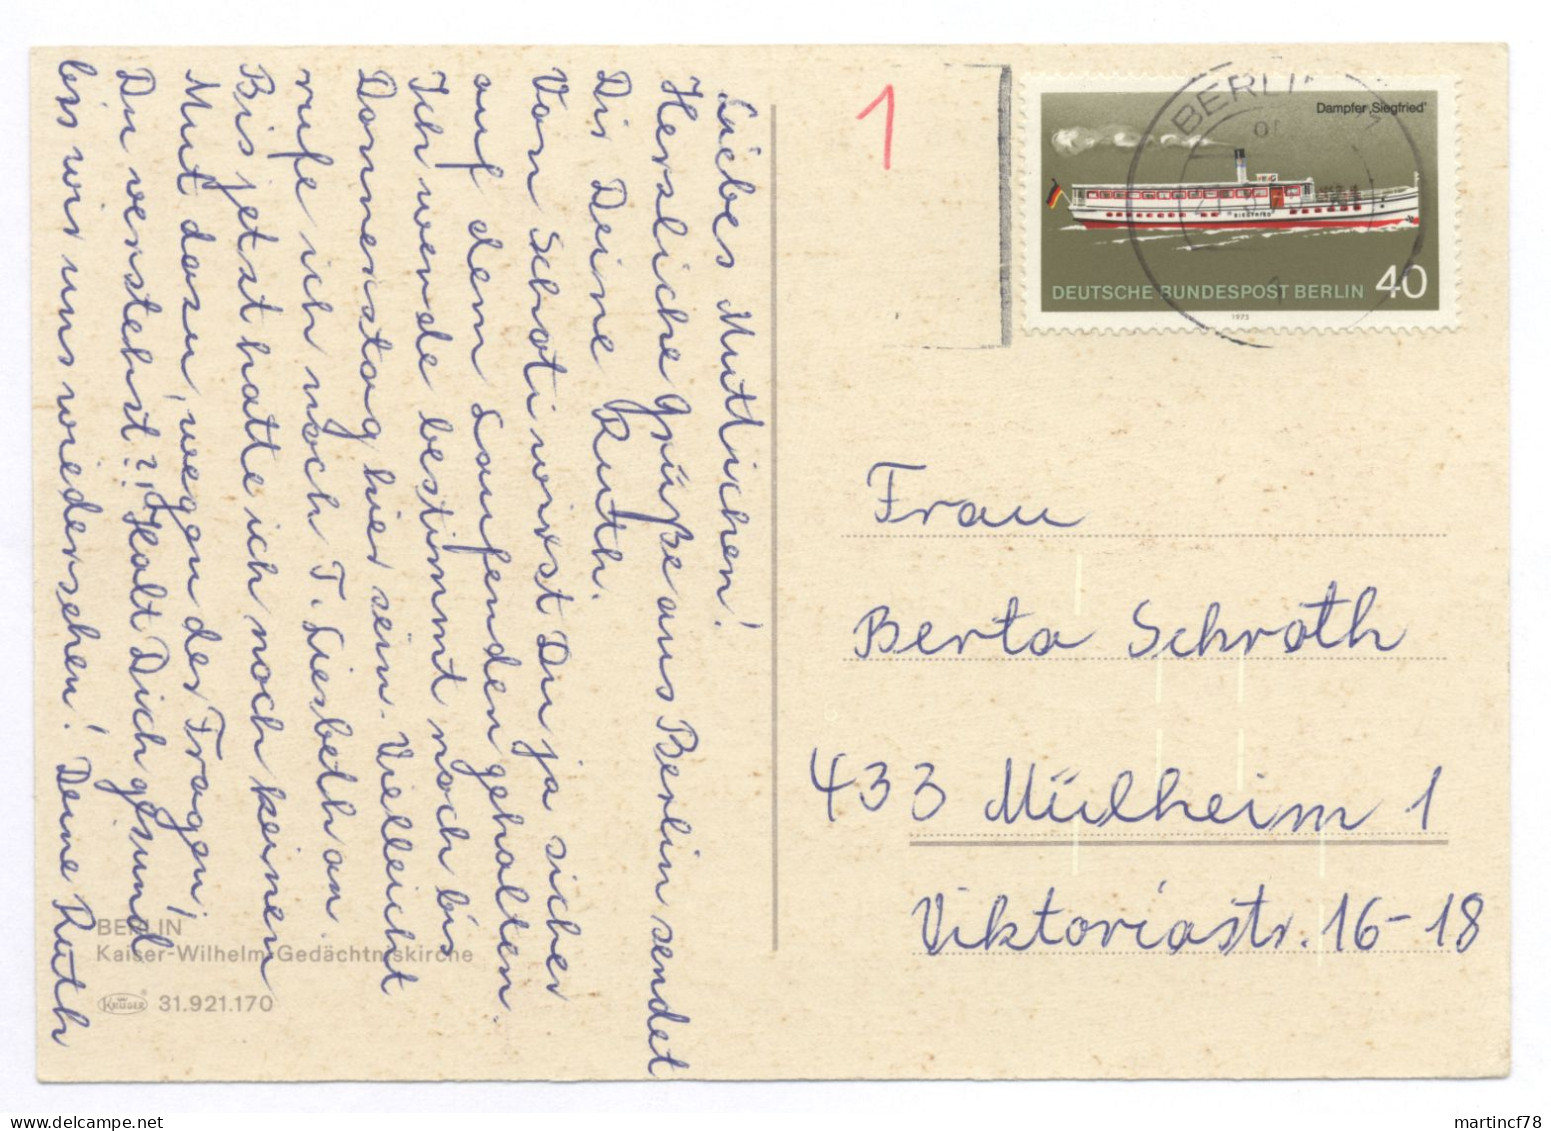 Liebes Muttichen!
Herzliche Grüße aus Berlin sendet
Dir Deine Ruth.
Von Schoti wirst Du ja sicher
auf dem Laufenden gehalten.
Ich werde bestimmt noch bis
Donnerstag hier sein. Vielleicht
rufe ich noch T. Liesbeth an.
Bis jetzt hatte ich noch keinen
Mut dazu, wegen der Fragen!
Du verstehst?! Halt Dich gesund
bis wir uns wiedersehen! Deine Ruth
BERLIN
Kaiser-Wilhelm-Gedächtniskirche
KRÜGER 31.921.170
1
BERLIN
Dampfer ‚Siegfried'
SIEGFRIED
DEUTSCHE BUNDESPOST BERLIN 40
1975
Frau
Berta Schroth
433 Mülheim 1
Viktoriastr. 16-18
martincf78